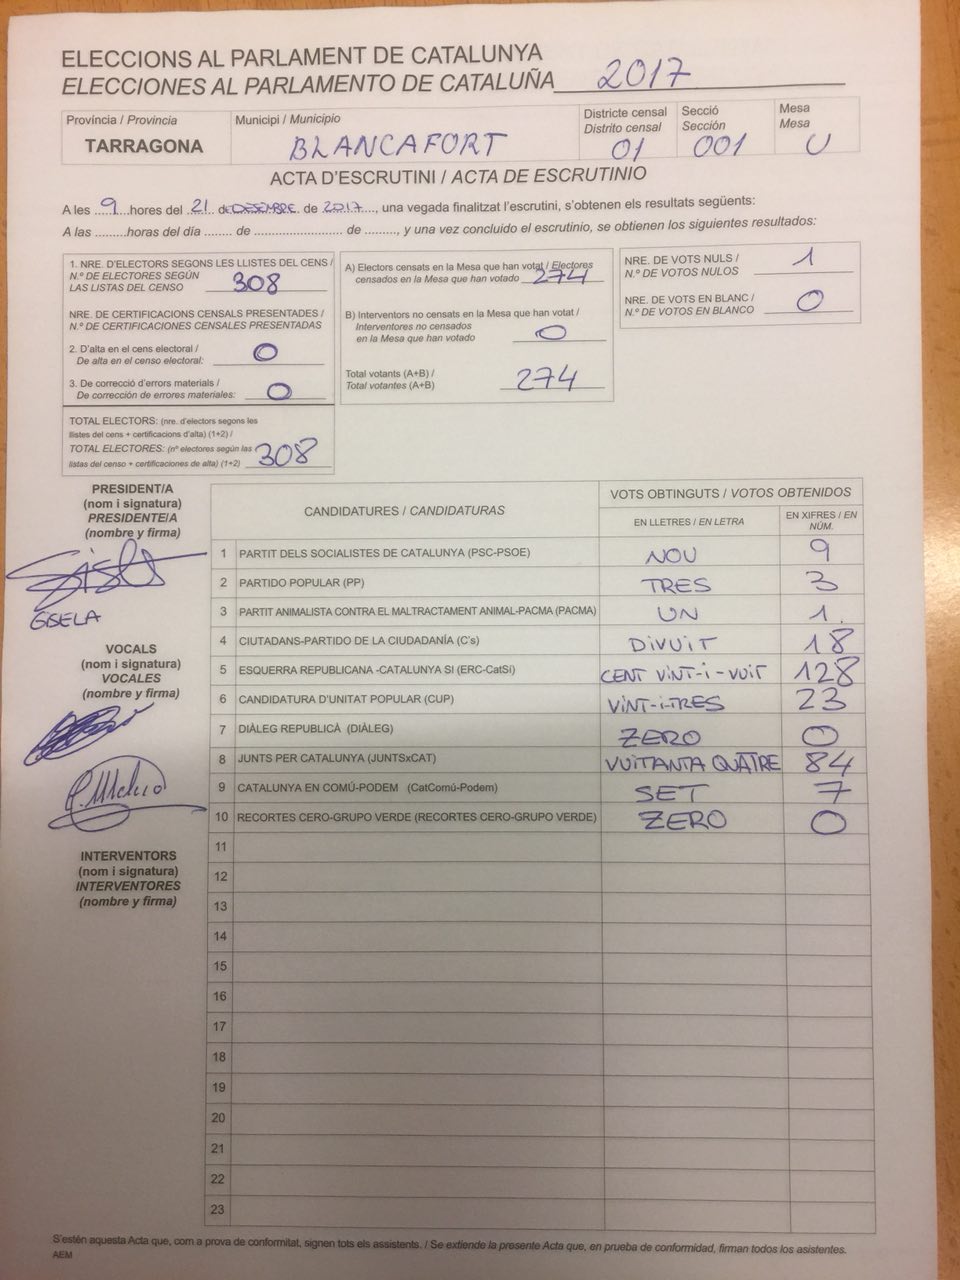 ELECCIONS AL PARLAMENT DE CATALUNYA
ELECCIONES AL PARLAMENTO DE CATALUÑA 2017
Província / Provincia
TARRAGONA
Municipi / Municipio
BLANCAFORT
Districte censal
Distrito censal
01
Secció
Sección
001
Mesa
Mesa
U
ACTA D'ESCRUTINI / ACTA DE ESCRUTINIO
A les ...9...hores del .21. de DESEMBRE. de 2017...., una vegada finalitzat l'escrutini, s'obtenen els resultats següents:
A las .........horas del día ........ de ......................... de ........., y una vez concluido el escrutinio, se obtienen los siguientes resultados:
1. NRE. D'ELECTORS SEGONS LES LLISTES DEL CENS /
N.º DE ELECTORES SEGÚN
LAS LISTAS DEL CENSO 308
NRE. DE CERTIFICACIONS CENSALS PRESENTADES /
N.º DE CERTIFICACIONES CENSALES PRESENTADAS
2. D'alta en el cens electoral /
De alta en el censo electoral: 0
3. De correcció d'errors materials /
De corrección de errores materiales: 0
TOTAL ELECTORS: (nre. d'electors segons les
llistes del cens + certificacions d'alta) (1+2) /
TOTAL ELECTORES: (nº electores según las
listas del censo + certificaciones de alta) (1+2) 308
A) Electors censats en la Mesa que han votat / Electores
censados en la Mesa que han votado 274
B) Interventors no censats en la Mesa que han votat /
Interventores no censados
en la Mesa que han votado 0
Total votants (A+B) /
Total votantes (A+B) 274
NRE. DE VOTS NULS /
N.º DE VOTOS NULOS 1
NRE. DE VOTS EN BLANC /
N.º DE VOTOS EN BLANCO 0
PRESIDENT/A
(nom i signatura)
PRESIDENTE/A
(nombre y firma)
GISELA
VOCALS
(nom i signatura)
VOCALES
(nombre y firma)
INTERVENTORS
(nom i signatura)
INTERVENTORES
(nombre y firma)
CANDIDATURES / CANDIDATURAS
VOTS OBTINGUTS / VOTOS OBTENIDOS
EN LLETRES / EN LETRA
EN XIFRES / EN
NÚM.
1 PARTIT DELS SOCIALISTES DE CATALUNYA (PSC-PSOE) NOU 9
2 PARTIDO POPULAR (PP) TRES 3
3 PARTIT ANIMALISTA CONTRA EL MALTRACTAMENT ANIMAL-PACMA (PACMA) UN 1.
4 CIUTADANS-PARTIDO DE LA CIUDADANÍA (C's) DIVUIT 18
5 ESQUERRA REPUBLICANA -CATALUNYA SI (ERC-CatSí) CENT VINT-I-VUIT 128
6 CANDIDATURA D'UNITAT POPULAR (CUP) VINT-I-TRES 23
7 DIÀLEG REPUBLICÀ (DIÀLEG) ZERO 0
8 JUNTS PER CATALUNYA (JUNTSxCAT) VUITANTA QUATRE 84
9 CATALUNYA EN COMÚ-PODEM (CatComú-Podem) SET 7
10 RECORTES CERO-GRUPO VERDE (RECORTES CERO-GRUPO VERDE) ZERO 0
11
12
13
14
15
16
17
18
19
20
21
22
23
S'estén aquesta Acta que, com a prova de conformitat, signen tots els assistents. / Se extiende la presente Acta que, en prueba de conformidad, firman todos los asistentes.
AEM